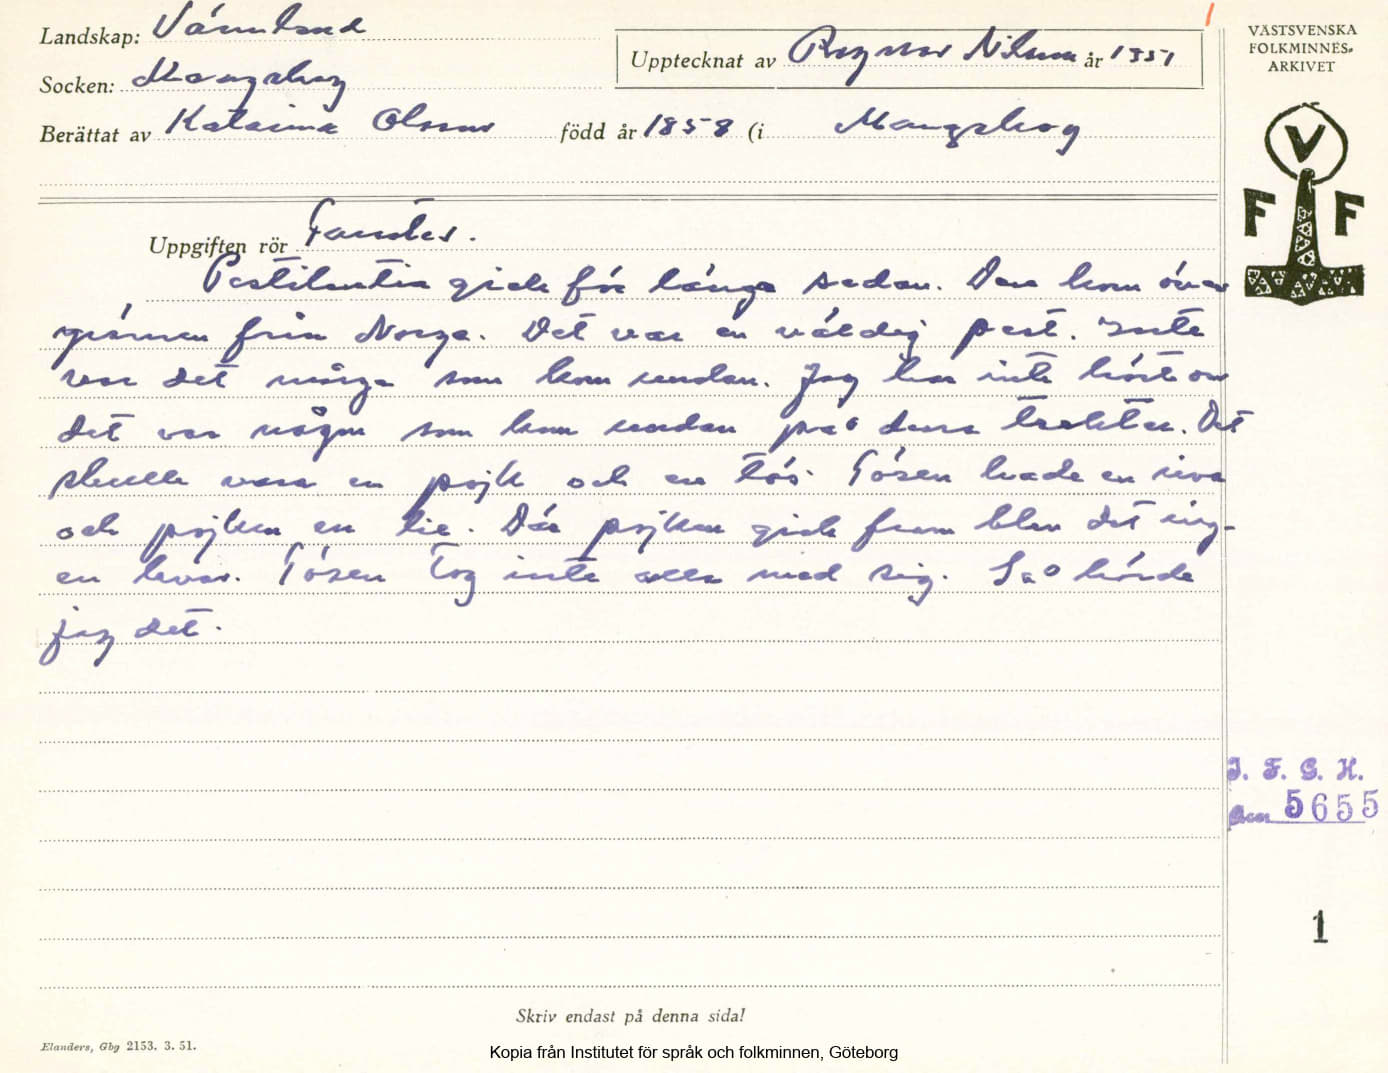 Landskap: Värmland
Socken: Mangskog
Upptecknat av Ragnar Nilsson år 1951
Berättat av Katarina Olsson född år 1858 (i Mangskog
VÄSTSVENSKA
FOLKMINNES-
ARKIVET
V
F F
Uppgiften rör Farsoter.
Pestilentia gick för länge sedan. Den kom över
gränsen från Norge. Det var en väldig pest. Inte
var det många som kom undan. Jag har inte hört om
det var någon som kom undan på dessa trakter. Det
skulle vara en pojk och en tös. Tösen hade en riva
och pojken en lie. Där pojken gick fram blev det ing-
en kvar. Tösen tog inte alla med sig. Så hörde
jag det.
I. F. G. H.
Acc. 5655
1
Skriv endast på denna sida!
Elanders, Gbg 2153. 3. 51.
Kopia från Institutet för språk och folkminnen, Göteborg